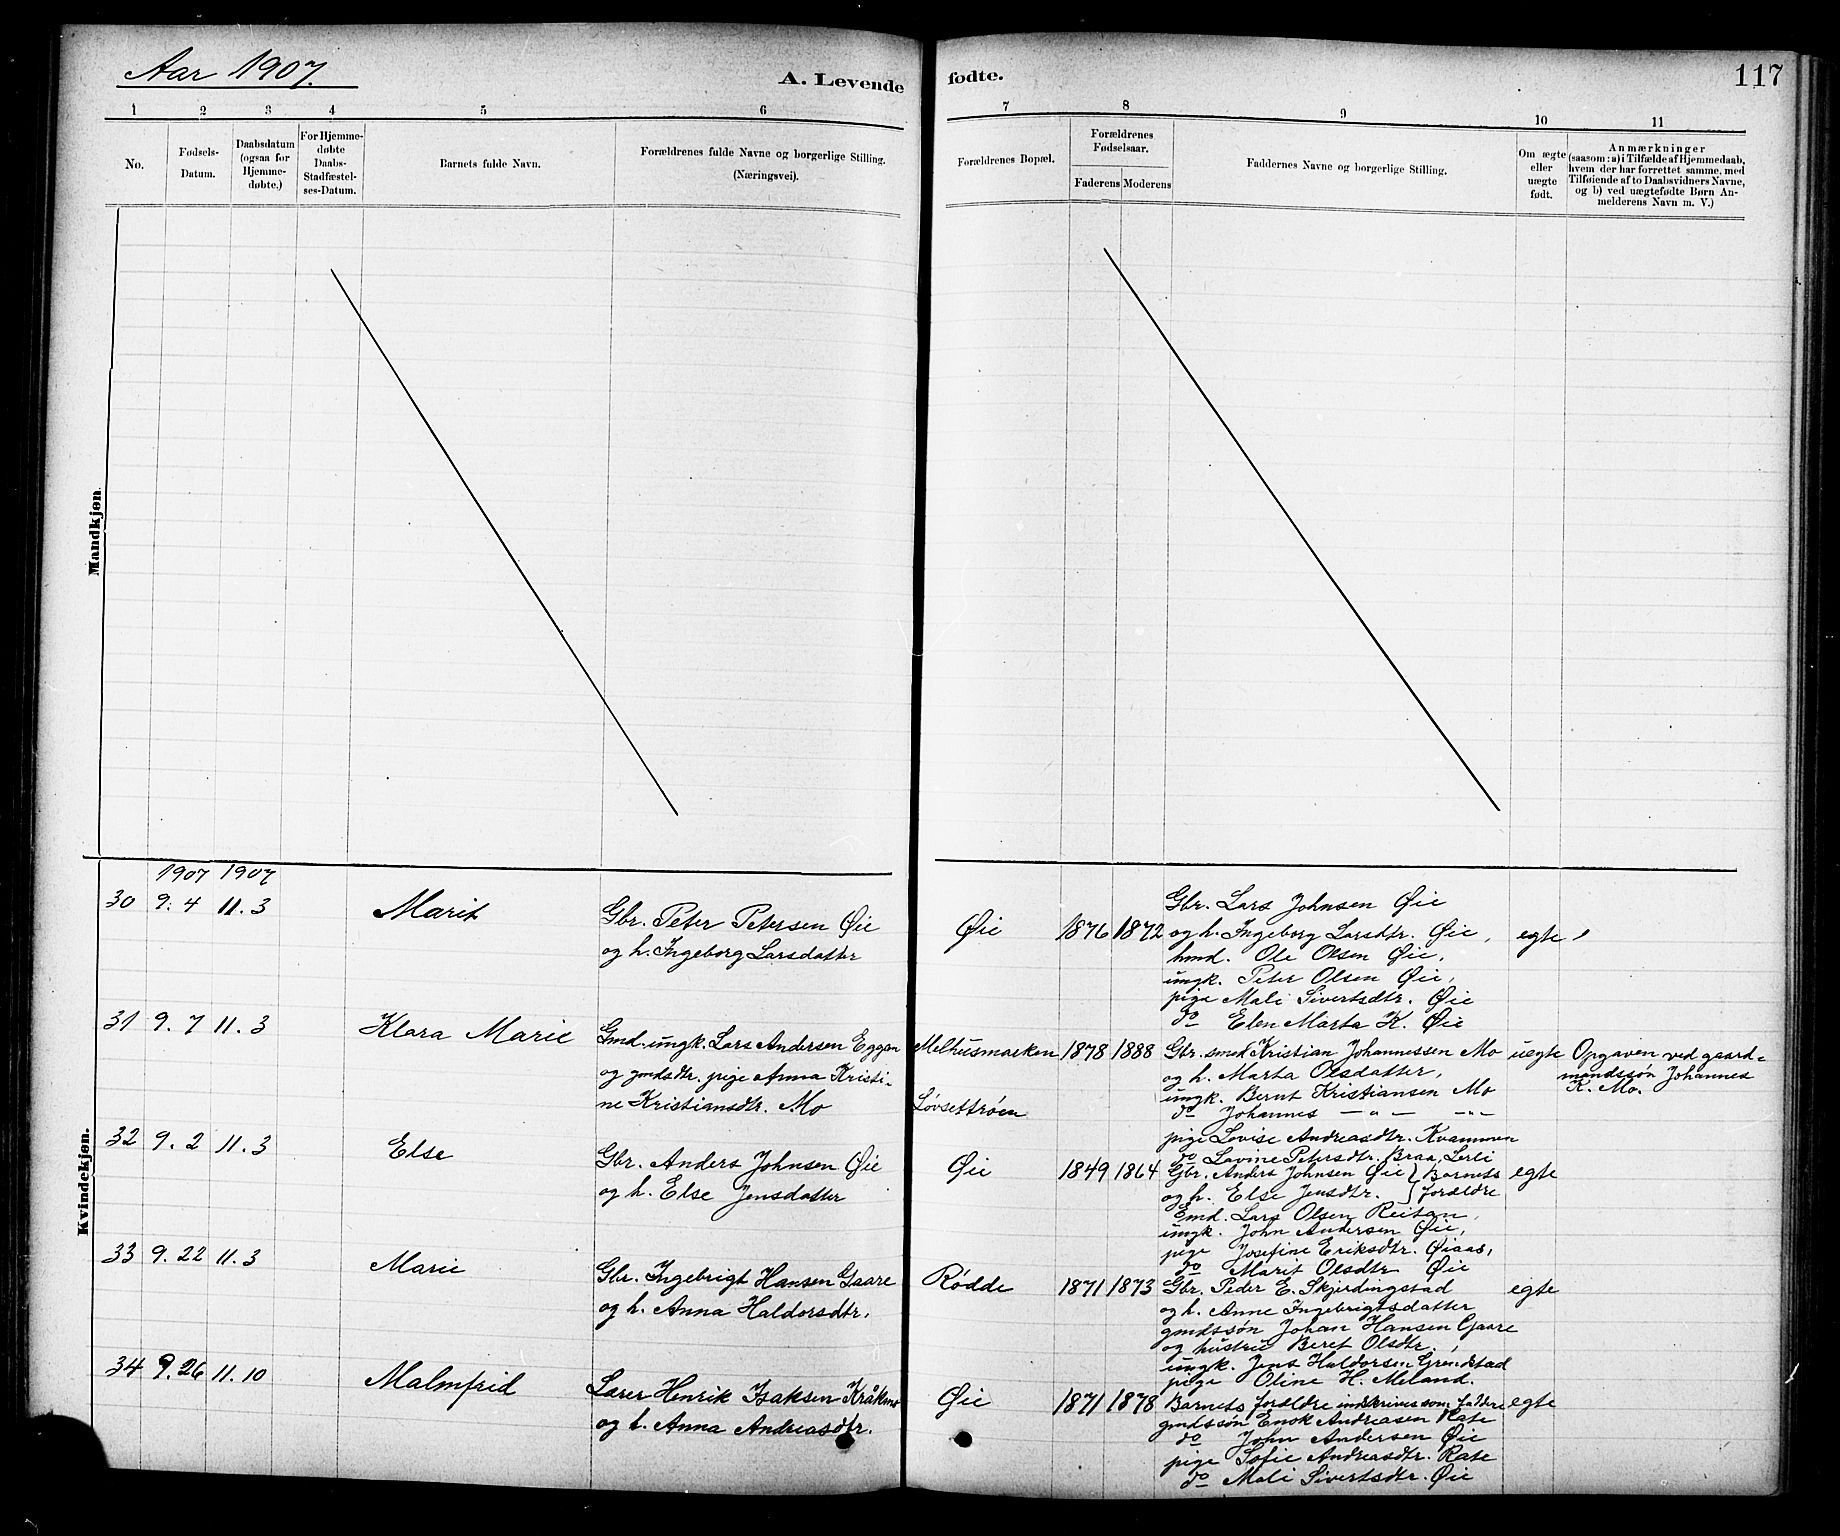 Aar 1907.
A. Levende fødte.
117
1 2 3 4 5 6 7 8 9 10 11
No.
Fødsels-
Datum.
Daabsdatum
(ogsaa for
Hjemme-
døbte.)
For Hjemme-
døbte
Daabs-
Stadfæstel-
ses-Datum.
Barnets fulde Navn.
Forældrenes fulde Navne og borgerlige Stilling.
(Næringsvei).
Forældrenes Bopæl.
Forældrenes
Fødselsaar.
Faderens Moderens
Faddernes Navne og borgerlige Stilling.
Om ægte
eller
uægte
født.
Anmærkninger
(saasom: a) i Tilfælde af Hjemmedaab,
hvem der har forrettet samme, med
Tilføiende af to Daabsvidners Navne,
og b) ved uægtefødte Børn An-
melderens Navn m. V.)
Mandkjøn.
Kvindekjøn.
1907 1907
30 9. 4 11. 3 Marit
Gbr. Peter Petersen Øie
og h. Ingeborg Larsdatter
Øie 1876 1872
Gbr. Lars Johnsen Øie
og h. Ingeborg Larsdtr. Øie,
hmd. Ole Olsen Øie,
ungk. Peter Olsen Øie,
pige Mali Sivertsdtr. Øie
do Elen Marta K. Øie
egte
31 9. 7 11. 3 Klara Marie
Gmd. ungk. Lars Andersen Eggen
og gmdsdtr. pige Anna Kristi-
ne Kristiansdtr. Mo
Melhusmarken
Løvsettrøen
1878 1888
Gbr. smed Kristian Johannessen Mo
og h. Marta Olsdatter,
ungk. Bernt Kristiansen Mo
do Johannes — " — — " —
pige Lovise Andreasdtr. Kvammen
do Lavine Petersdtr. Braa, Lerli
uegte
Opgaven ved gaard-
mandssøn Johannes
K. Mo.
32 9. 2 11. 3 Else
Gbr. Anders Johnsen Øie
og h. Else Jensdatter
Øie 1849 1864
Gbr. Anders Johnsen Øie } Barnets
og h. Else Jensdtr. } forældre
Gmd. Lars Olsen Reitan,
ungk. John Andersen Øie,
pige Josefine Eriksdtr. Øiaas,
do Marit Olsdtr Øie
egte
33 9. 22 11. 3 Marie
Gbr. Ingebrigt Hansen Gaare
og h. Anna Haldorsdtr.
Rødde 1871 1873
Gbr. Peder E. Skjerdingstad
og h. Anne Ingebrigtsdatter
gmdssøn Johan Hansen Gaare
og hustru Beret Olsdtr.,
ungk. Jens Haldorsen Grendstad
pige Oline H. Meland.
egte
34 9. 26 11. 10 Malmfrid
Lærer Henrik Isaksen Kråkmo
og h. Anna Andreasdtr.
Øie 1871 1878
Barnets forældre indskrives som faddere
gmdssøn Enok Andreasen Rate
do John Andersen Øie
pige Sofie Andreasdtr. Rate
do Mali Sivertsdtr. Øie
egte